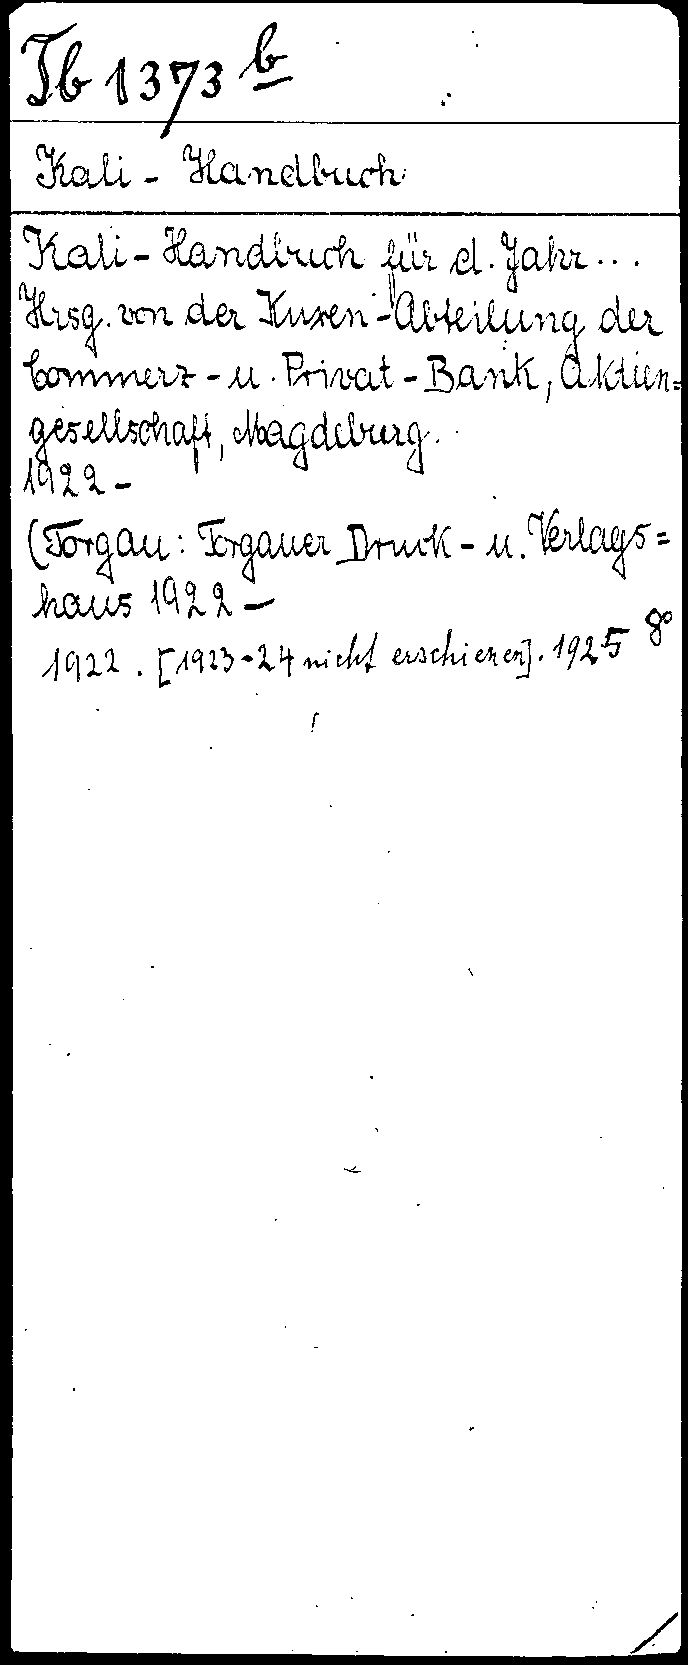 Tb 1373 b
Kali - Handbuch
Kali - Handbuch für d. Jahr ...
Hrsg. von der Kuxen-Abteilung der
Commerz- u. Privat-Bank, Aktien=
gesellschaft, Magdeburg.
1922 -
(Torgau: Torgauer Druck- u. Verlags=
haus 1922 -
8°
1922. [1923-24 nicht erschienen]. 1925